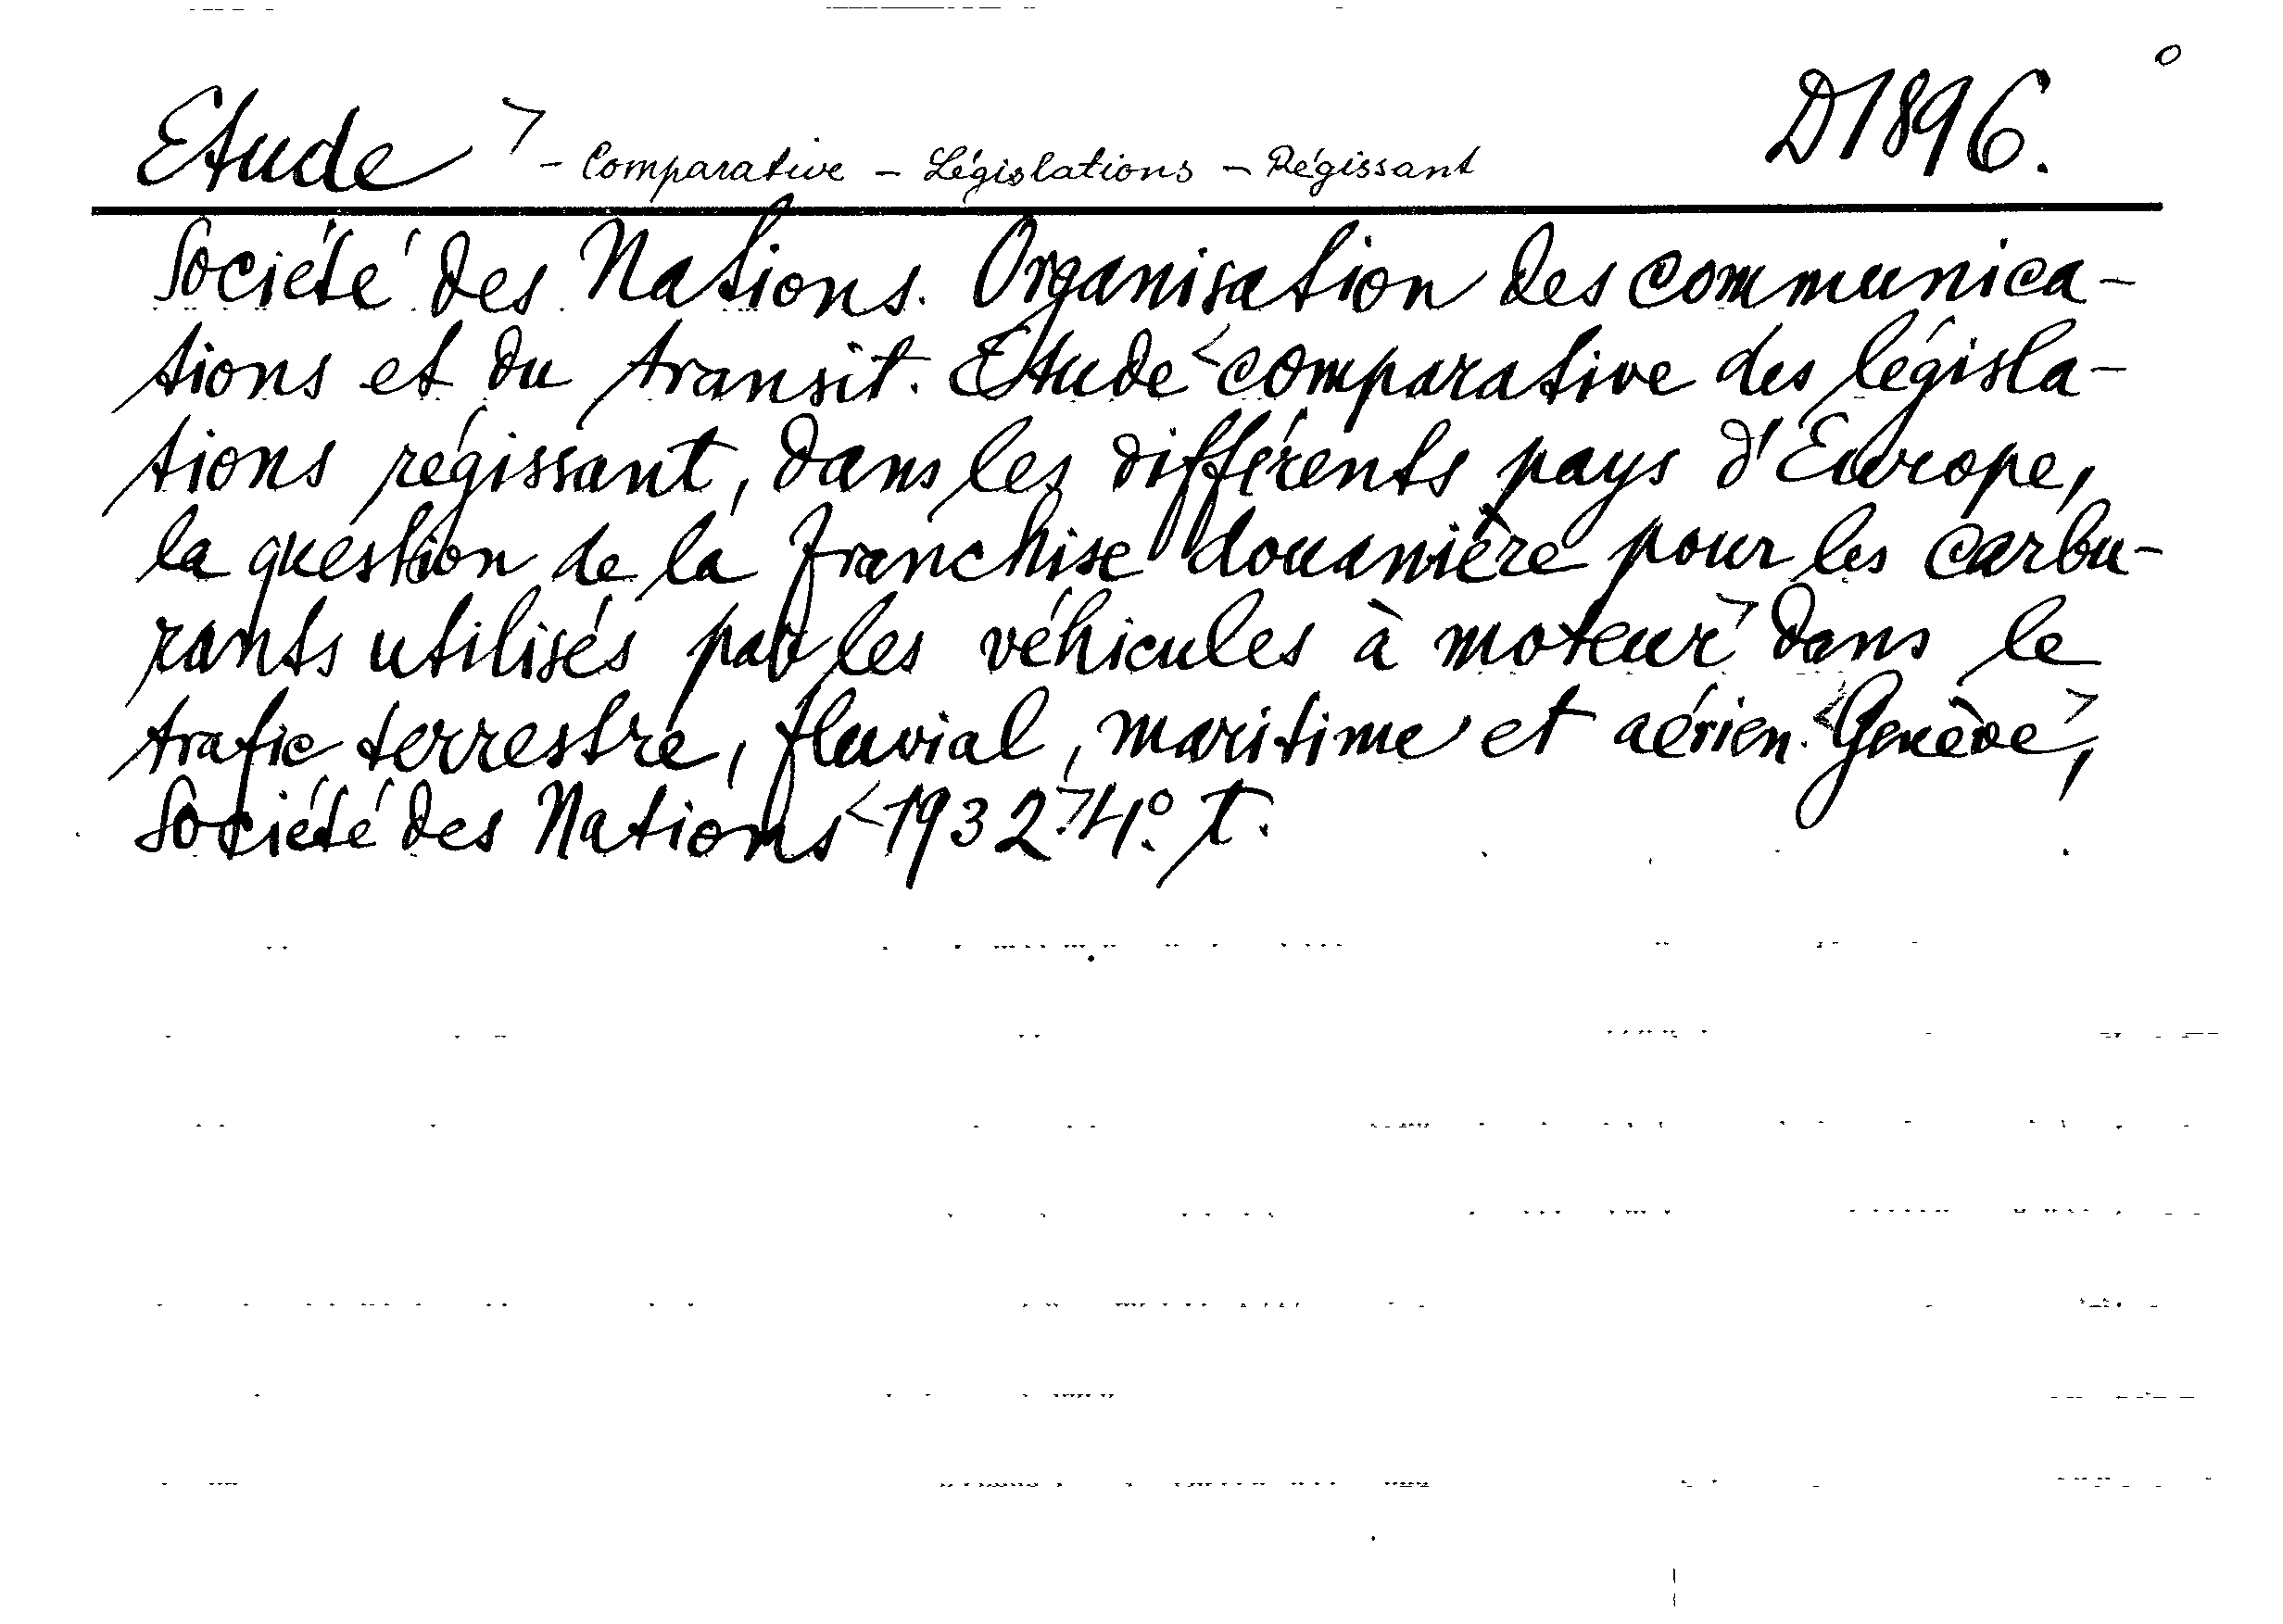 Etude > - Comparative - Législations - Régissant D1896. o
Société des Nations. Organisation des communica-
tions et du transit. Etude < comparative des législa-
tions régissant, dans les différents pays d'Europe,
la question de la franchise douanière pour les carbu-
rants utilisés par les véhicules à moteur > dans le
trafic terrestre, fluvial, maritime et aérien. < Genève >,
Société des Nations < 1932. > 4°. T.